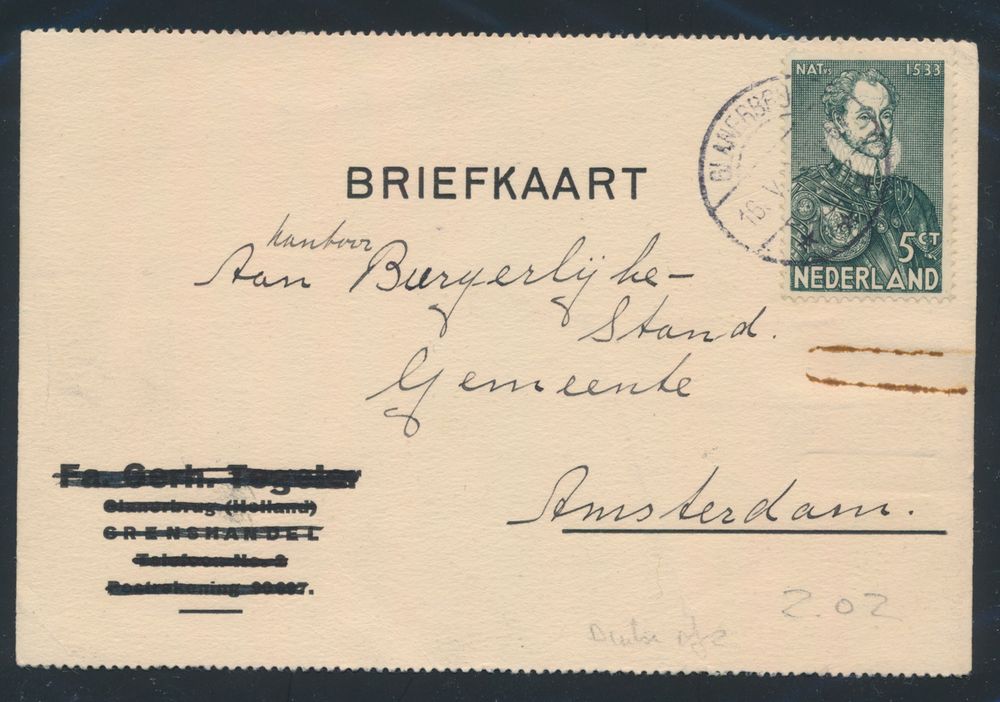 NATVS 1533
GLANERBRU
16. V.
5 CT
NEDERLAND
BRIEFKAART
kantoor
Aan Burgerlijke-
Stand.
Gemeente
Amsterdam.
Fa. Gerh. Tegeler
Glanerbrug (Holland)
GRENSHANDEL
Telefoon No. 2
Postrekening
2.02